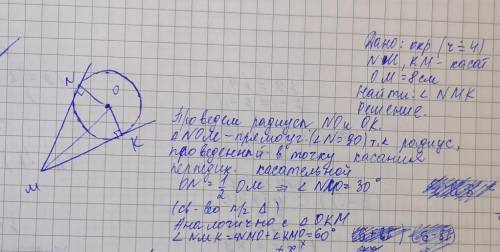 N
O
K
M
Дано: окр (r = 4)
NM, KM - касат
OM = 8 см
Найти: ∠ NMK
Решение.
Проведем радиусы NO и OK.
△NOM - прямоуг (∠N = 90) т.к радиус,
проведенный в точку касания
перпендик. касательной
ON = 1/2 OM ⇒ ∠ NMO = 30°
(св-во п/у △)
Аналогично с △ OKM
∠ NMK = ∠NMO + ∠KMO = 60°